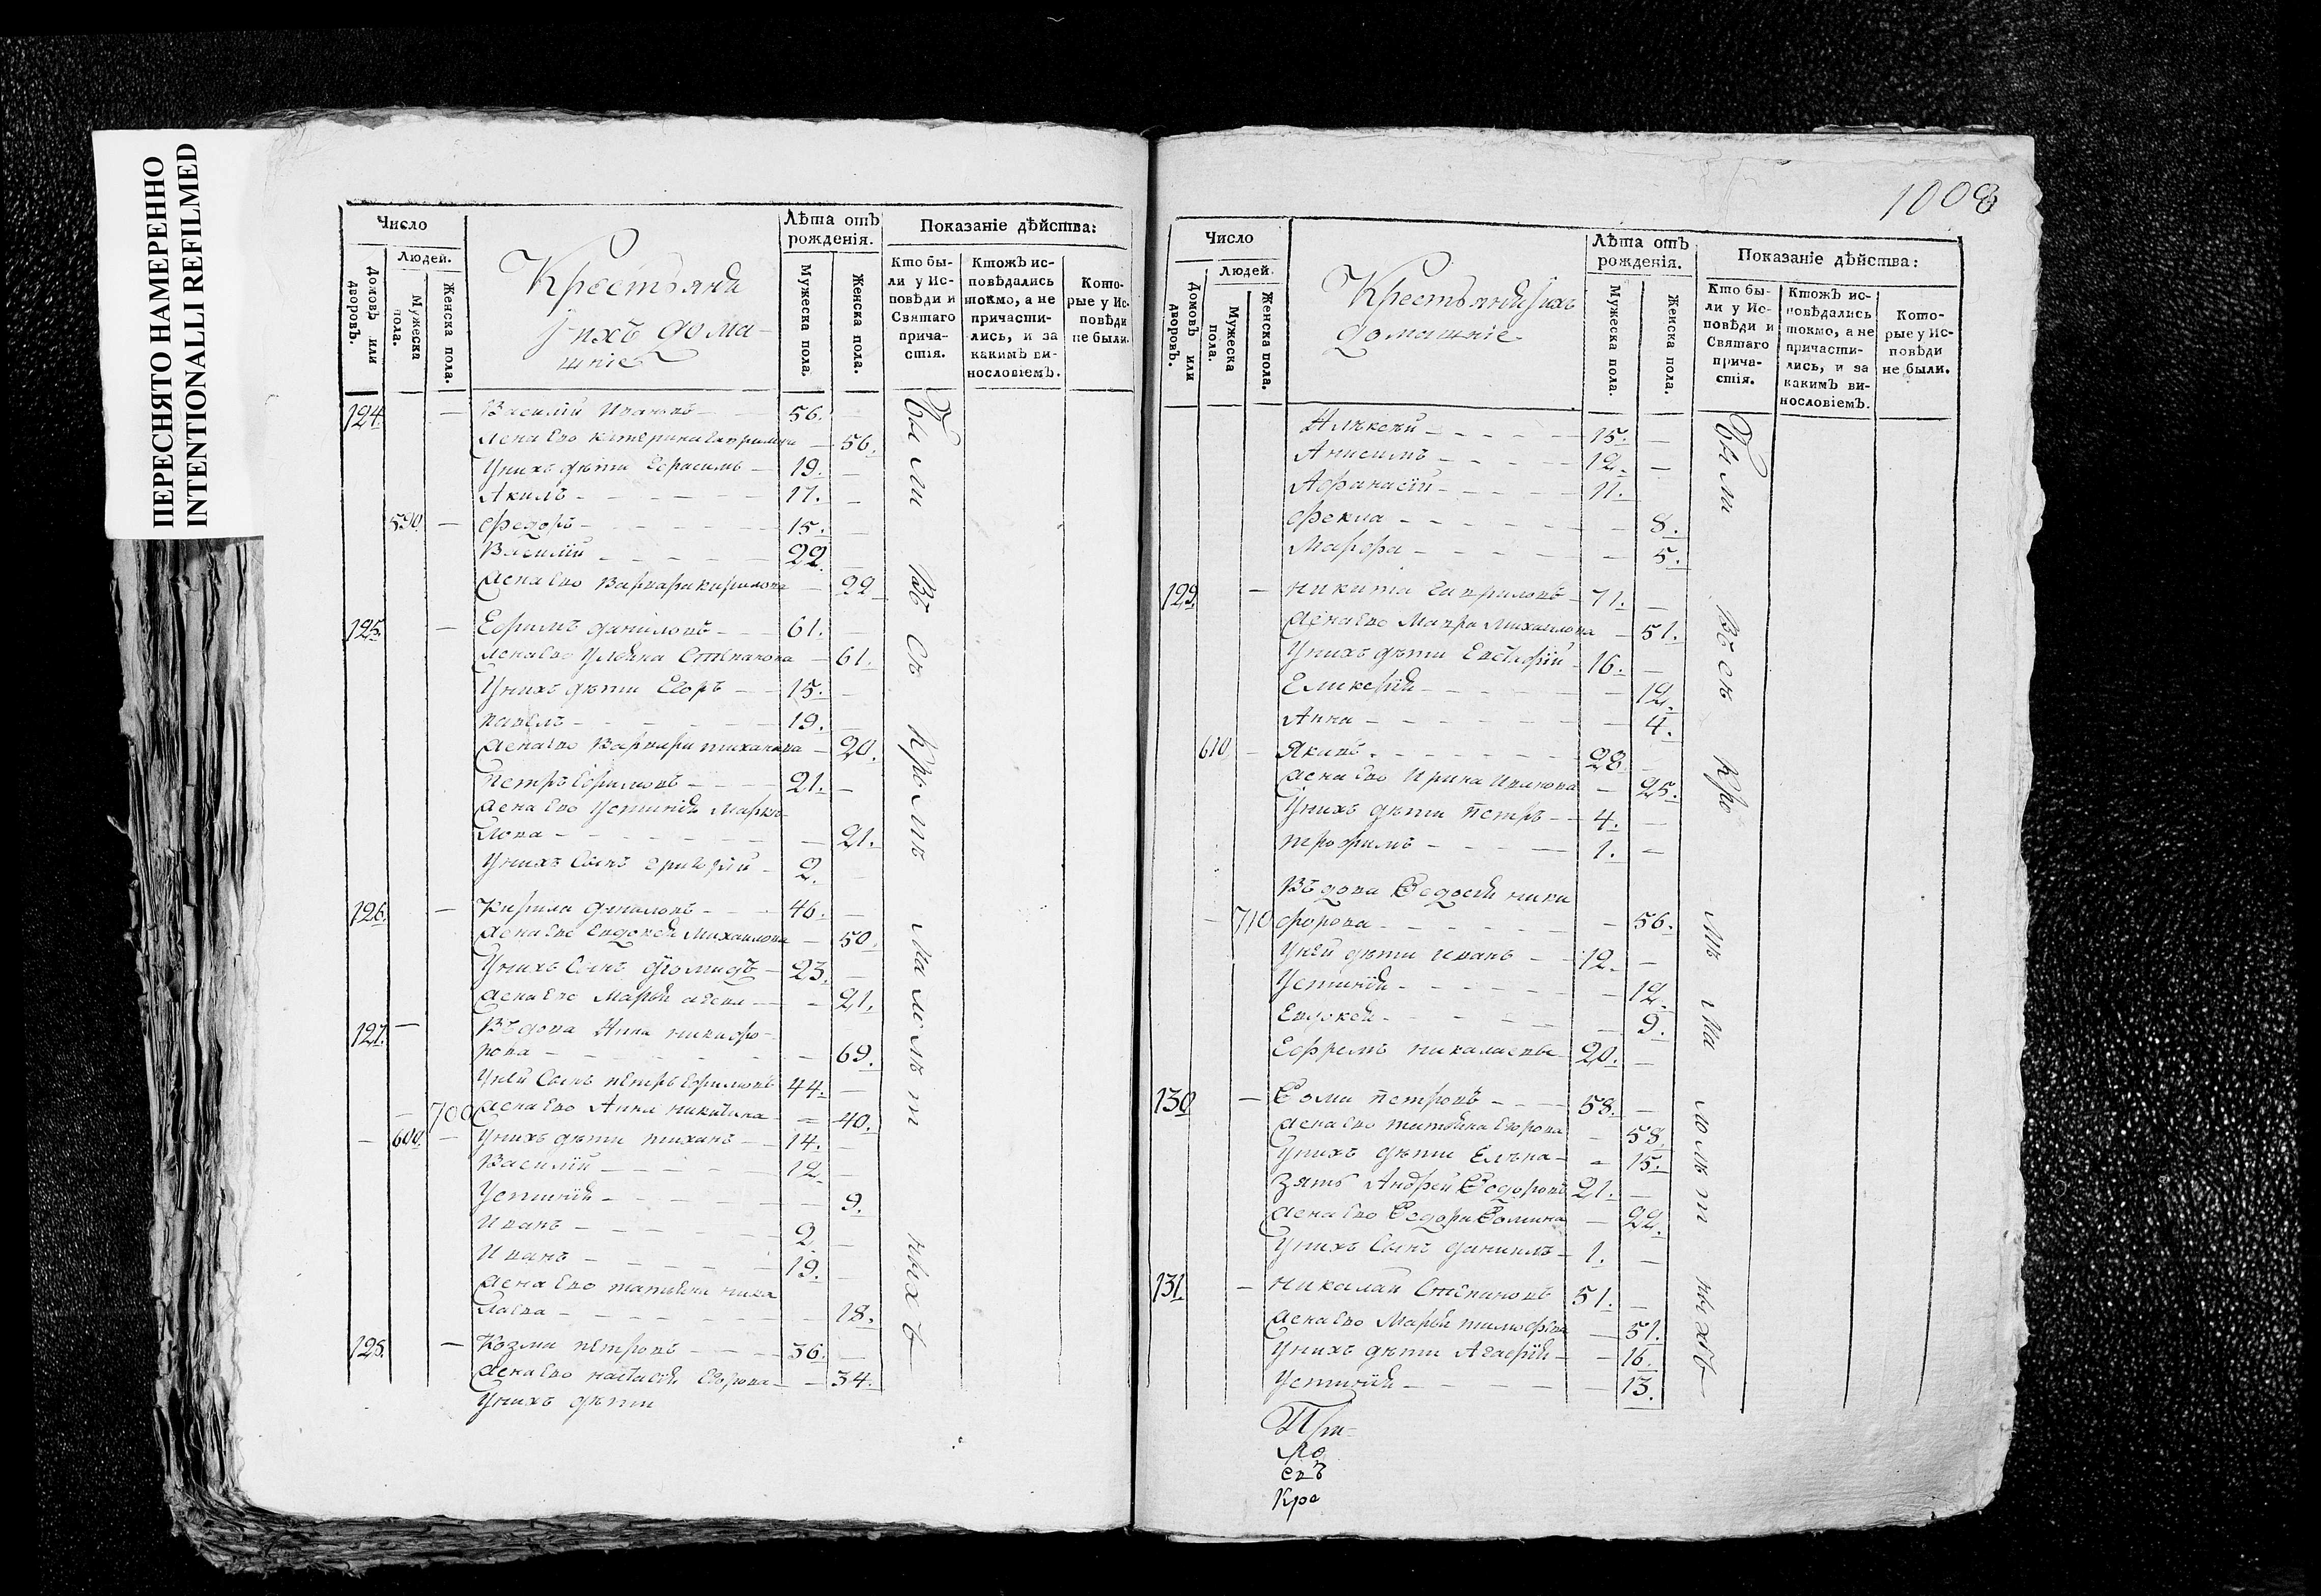 ПЕРЕСНЯТО НАМЕРЕННО
INTENTIONALLI REFILMED
Число
Людей.
Домовъ или дворовъ.
Мужеска пола.
Женска пола.
Крестьяня
ихъ дома-
шніе
Лѣта отъ рожденія.
Мужеска пола.
Женска пола.
Показаніе дѣйства:
Кто были у Исповѣди и Святаго причастія.
Ктожъ исповѣдались токмо, а не причастились, и за какимъ винословіемъ.
Которые у Исповѣди не были.
124. — Василий Ивановъ — 56. —
жена Ево Катерина Гаврилова — 56.
У нихъ дѣти Герасимъ — 19. —
Акимъ — 17. —
590. — Федоръ — 15. —
Василий — 22. —
жена Ево Варвара Кирилова — 22
125. — Ефимъ даниловъ — 61. —
жена Ево Ульяна Степанова — 61.
У нихъ дѣти Егоръ — 15. —
павелъ — 19. —
жена Ево Варвара тиханова — 20.
петръ Ефимовъ — 21. —
жена Ево Устинья Марке-
лова — 21.
У нихъ Сынъ григорій — 2. —
126. — Кирила даниловъ — 46. —
жена Ево Евдокея Михаилова — 50.
У нихъ Сынъ диомидъ — 23. —
жена Ево Марья — 21.
127. — Въдова Анна никифо-
рова — 69.
У ней Сынъ петръ Ефимовъ 44. —
— 700 жена Ево Анна никитина — 40.
— 600. — У нихъ дѣти тиханъ — 14. —
Василий — 12. —
Устинья — 9.
Иванъ — 2. —
Иванъ — 19. —
жена Ево татьяна никалаева — 18.
128. — Козма петровъ — 36. —
жена Ево настасья Егорова — 34.
У нихъ дѣти
Были Въ Сѣ Кро Мѣ Ма Лолѣт ныхъ
1008
Число
Людей.
Домовъ или дворовъ.
Мужеска пола.
Женска пола.
Крестьяня ихъ
домашніе
Лѣта отъ рожденія.
Мужеска пола.
Женска пола.
Показаніе дѣйства:
Кто были у Исповѣди и Святаго причастія.
Ктожъ исповѣдались токмо, а не причастились, и за какимъ винословіемъ.
Которые у Исповѣди не были.
Алѣксѣй — 15. —
Анисимъ — 12. —
Афанасій — 11. —
Фекла — 8.
Марфа — 5.
129. — никита гавриловъ — 71. —
жена Ево Мавра Михаилова — 51.
У нихъ дѣти — 16. —
Гликерія — 12.
Анна — 4.
610. — Якивъ — 28. —
жена Ево Ирина Иванова — 25.
У нихъ дѣти петръ — 4. —
трофимъ — 1. —
Въдова Федосья ники-
— 710 форова — 56.
У ней дѣти иванъ — 12. —
Устинья — 12.
Евдокея — 9.
Ефремъ никалаевъ — 20. —
130 — Фома петровъ — 58. —
жена Ево татьяна Егорова — 58.
У нихъ дѣти Елѣна — 15.
Зять Андрей Федоровъ 21. —
жена Ево Федора Фомина — 22.
У нихъ Сынъ данилъ — 1. —
131. — никалай Степановъ 51. —
жена Ево Марья тимофѣва — 51.
У нихъ дѣти — 16.
Устинья — 13.
Были Въ сѣ Кро Мѣ Ма Лолѣт ныхъ
евъ
Кре